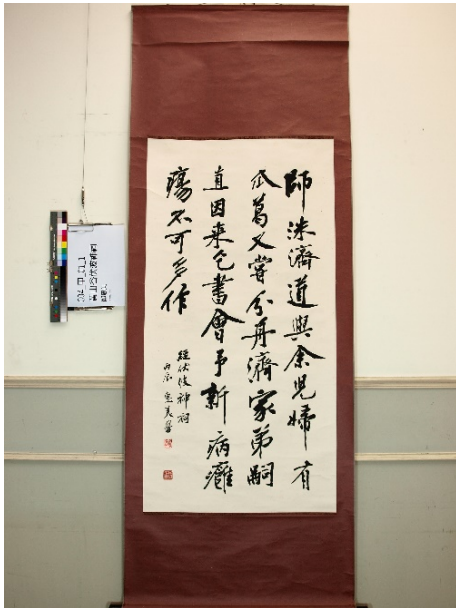 師洙濟道與余兒婦有
瓜葛又嘗分舟濟家弟嗣
直因来乞書會予新病癰
瘍不可多作
經伏波神祠